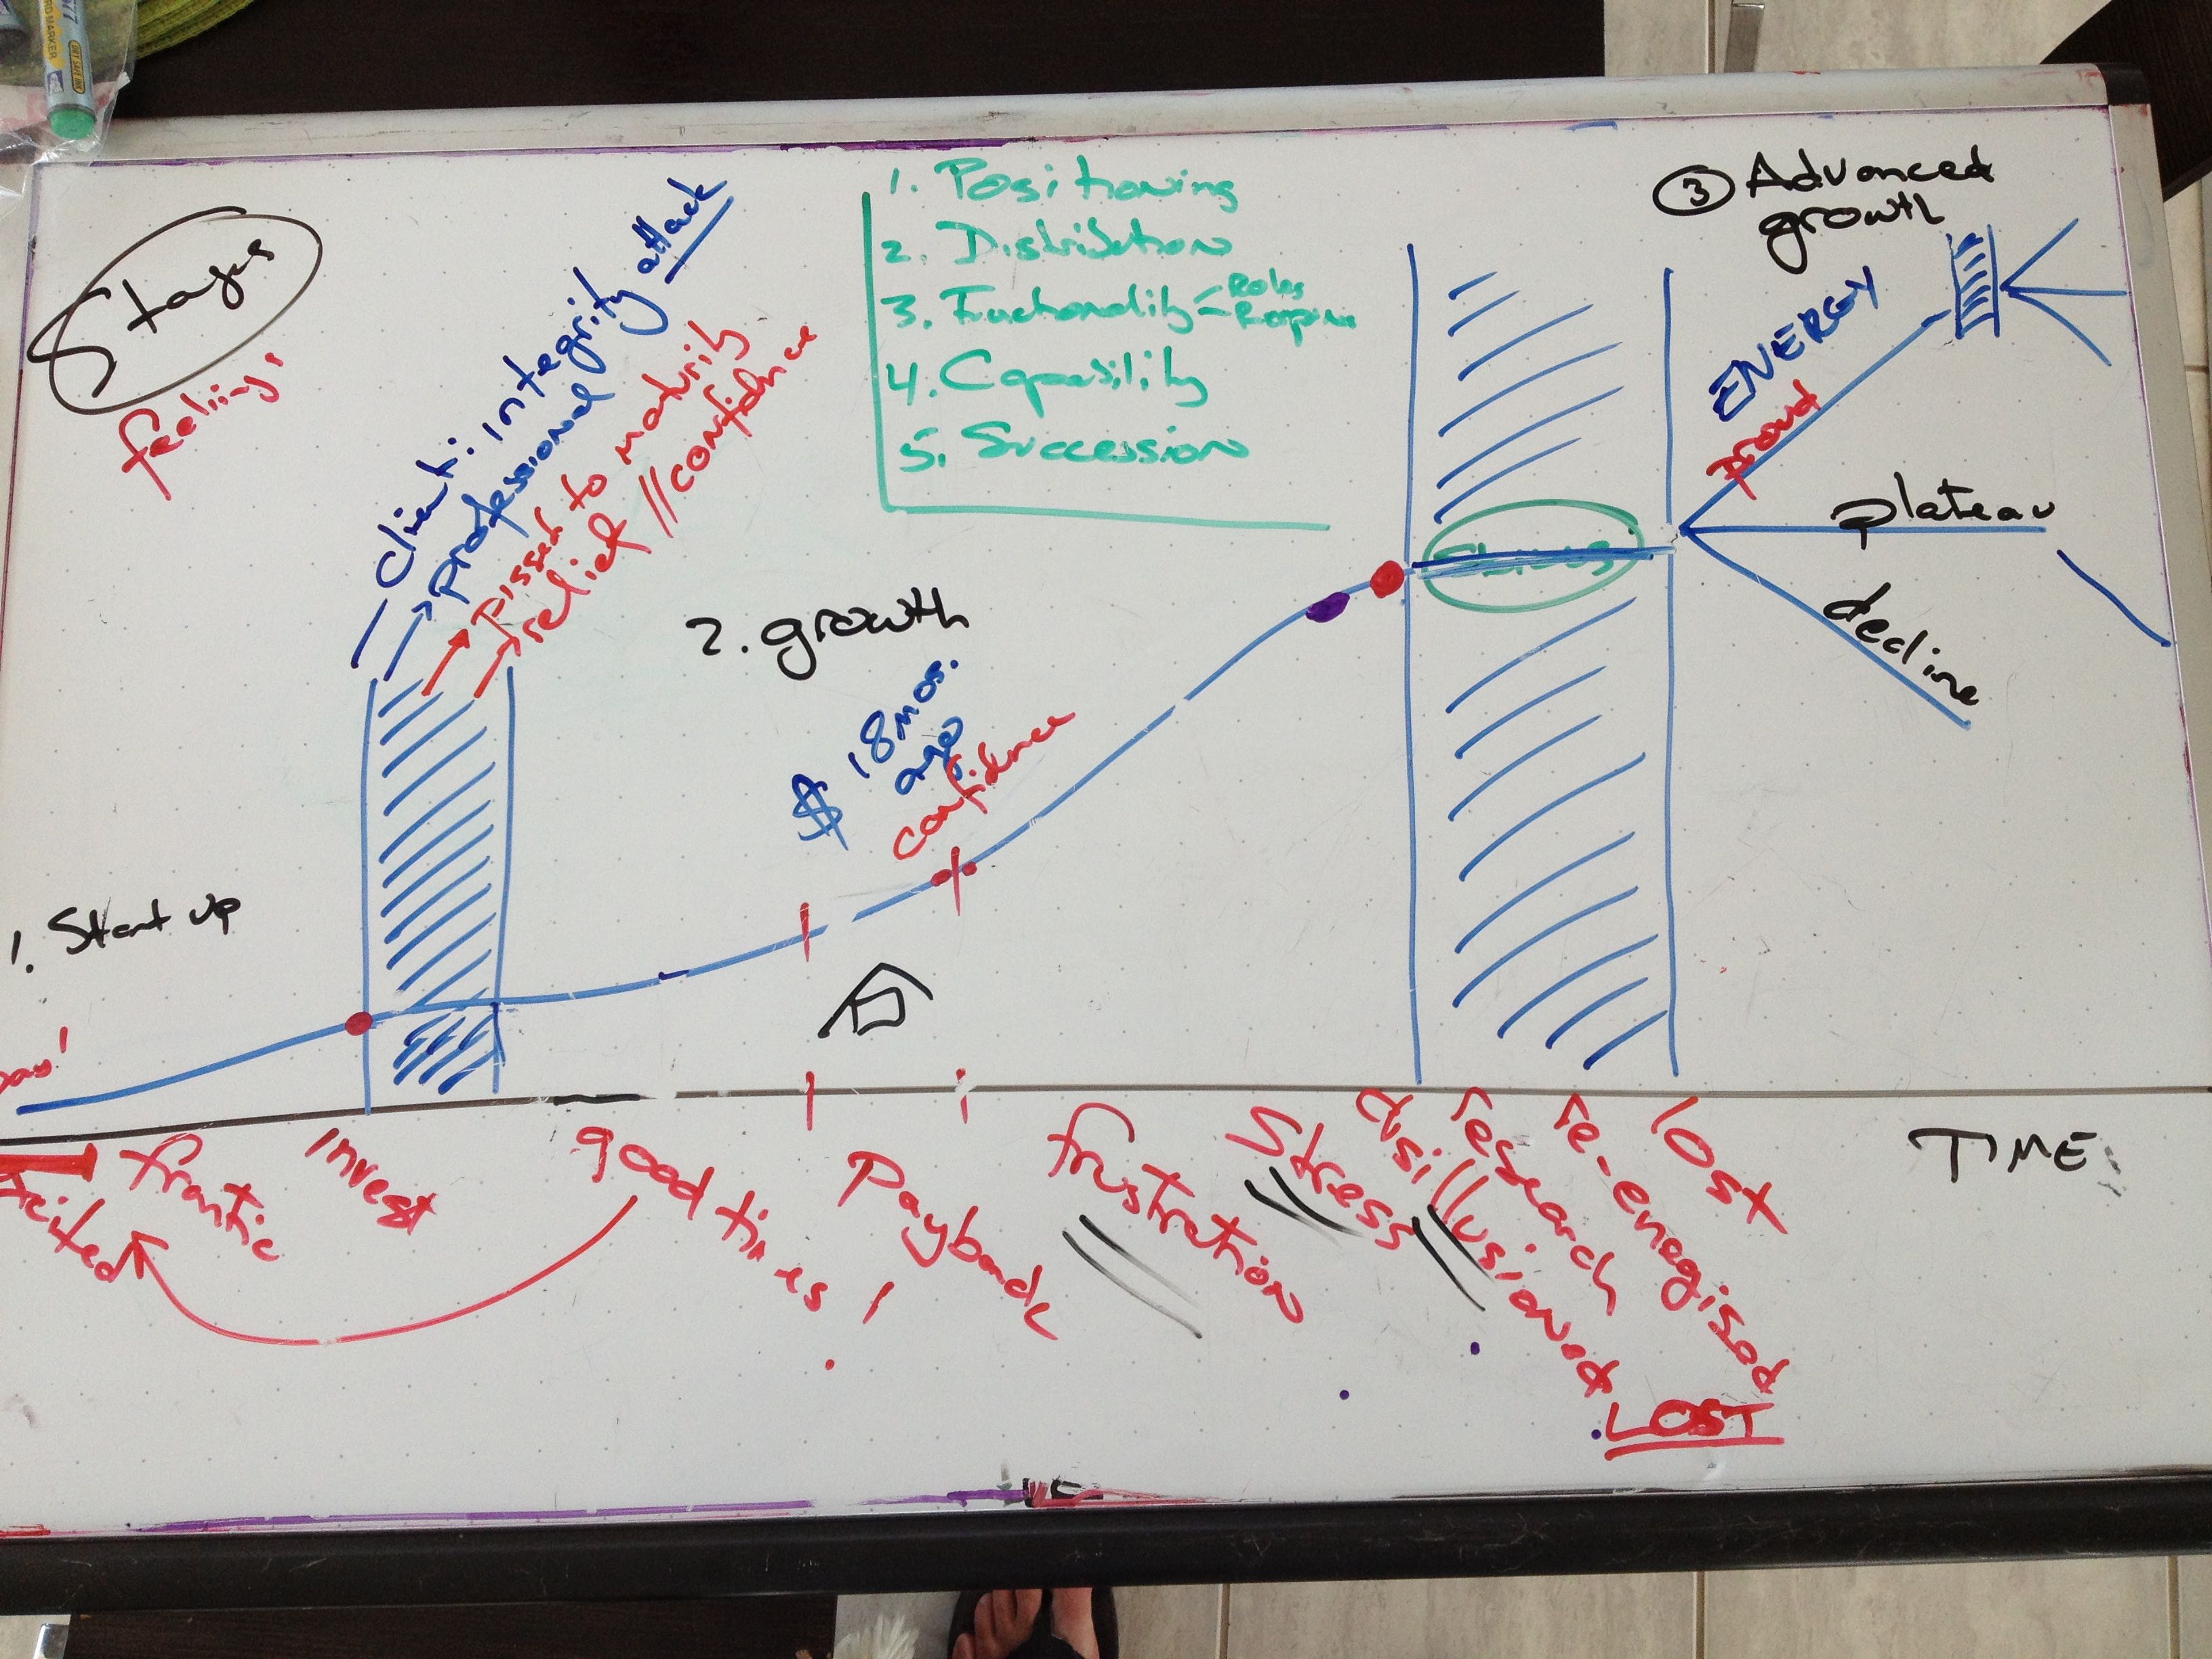 Stages
feelings
client: integrity attack
professional
pissed to maturity
relief // confidence
1. Positioning
2. Distribution
3. Fuctionality
Roles
4. Capability
5. Succession
3 Advanced
growth
ENERGY
proud
plateau
decline
2. growth
$ 18 mos.
ago
confidence
1. Start up
frantic
invest
good times!
Payback
frustration
Stress
disillusioned
research
re-energised
lost
LOST
TIME